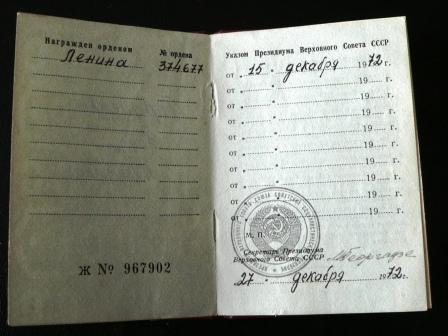 Награжден орденом № ордена
Ленина 374677
Ж № 967902
Указом Президиума Верховного Совета СССР
от „ 15 " декабря 1972 г.
от „ " 19 г.
от „ " 19 г.
от „ " 19 г.
от „ " 19 г.
от „ " 19 г.
от „ " 19 г.
от „ " 19 г.
от „ " 19 г.
М. П.
Секретарь Президиума
Верховного Совета СССР
27 " декабря 1972 г.